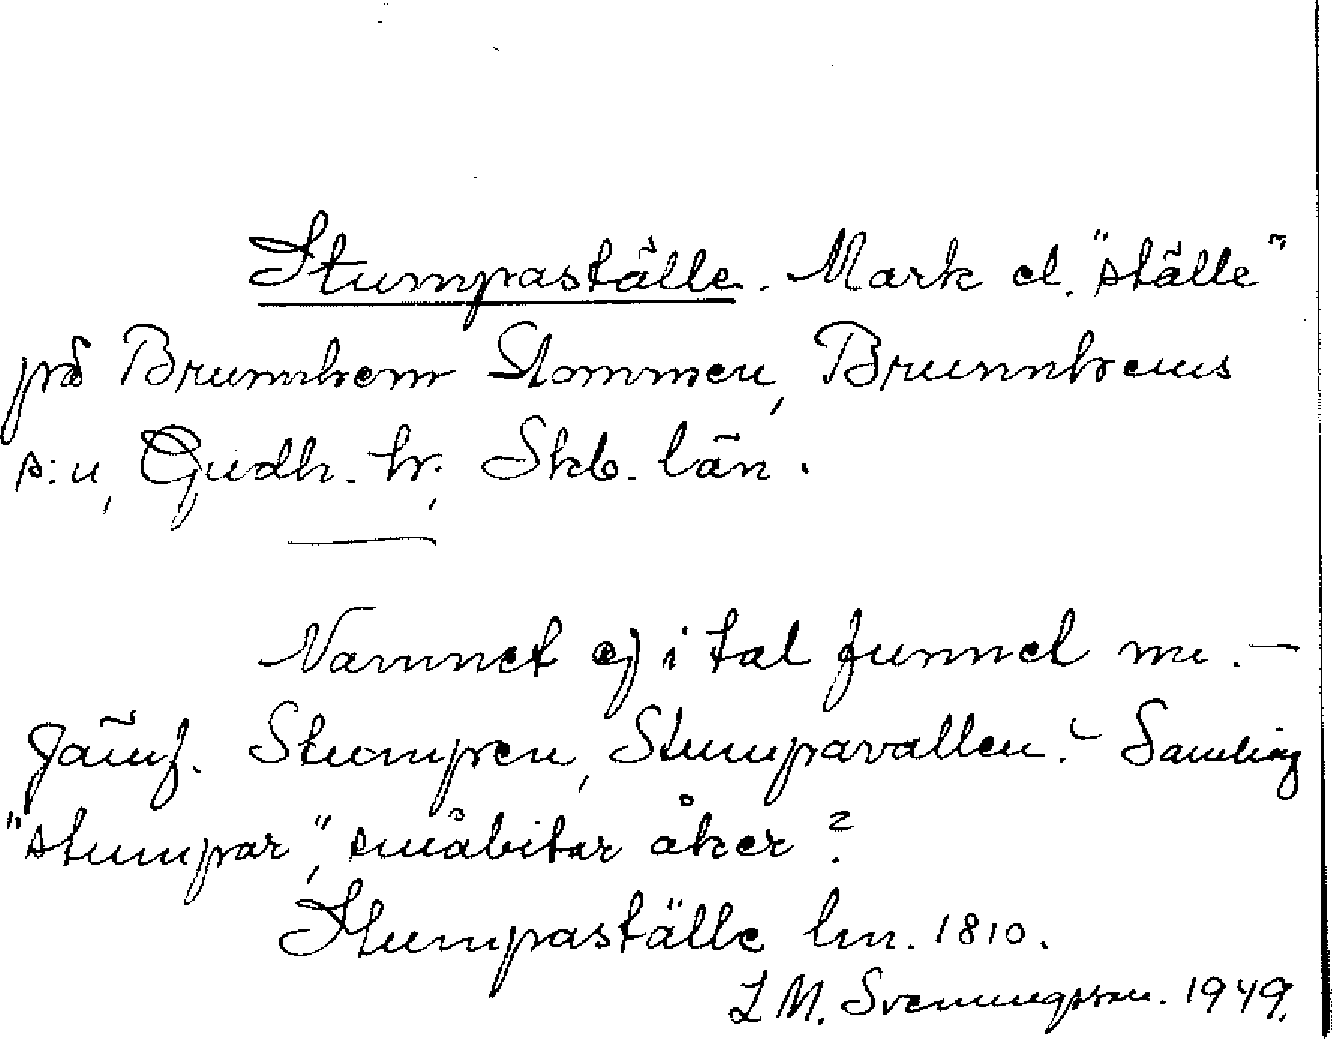 Stumpaställe. Mark el. "ställe"
på Brunnhem Stommen, Brunnhems
s:n, Gudh. hr., Skb. län.
Namnet ej i tal funnet nu. -
Jämf. Stumpen, Stumpavallen. - Samling
"stumpar", småbitar åker?
Stumpaställe lm. 1810.
L M. Svenungsson. 1949.